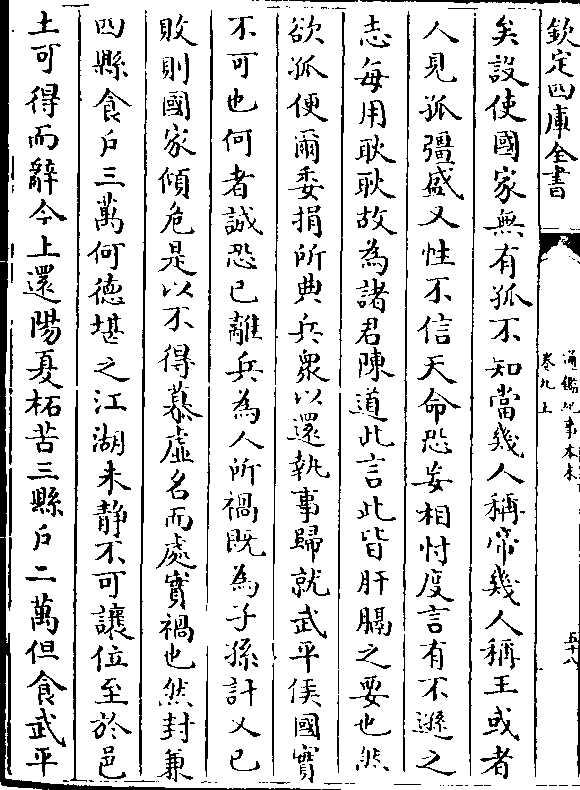 欽定四庫全書
通鑑紀事本末
卷九上
五十八
矣設使國家無有孤不知當幾人稱帝幾人稱王或者
人見孤彊盛又性不信天命恐妄相忖度言有不遜之
志每用耿耿故為諸君陳道此言此皆肝膈之要也然
欲孤便爾委捐所典兵衆以還執事歸就武平侯國實
不可也何者誠恐己離兵為人所禍既為子孫計又已
敗則國家傾危是以不得慕虛名而處實禍也然封兼
四縣食户三萬何德堪之江湖未靜不可讓位至於邑
土可得而辭今上還陽夏柘苦三縣户二萬但食武平